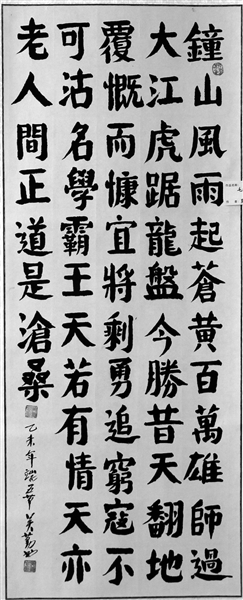 鐘山風雨起蒼黃百萬雄師過
大江虎踞龍盤今勝昔天翻地
覆慨而慷宜將剩勇追窮寇不
可沽名學霸王天若有情天亦
老人間正道是滄桑
乙未年